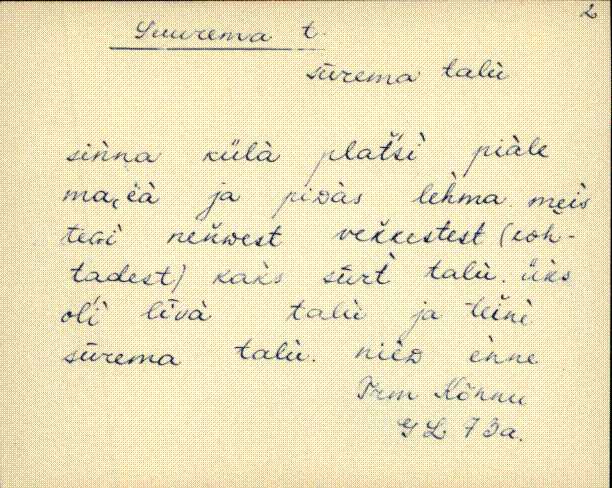 2
Suurema t.
sūrema talù
sińna külà plat̀si piàle
ja piDàs lèhma. meis
teGi neňnest veǩkestest (koh-
tadest) kaks sūrt talù. üks
oĺi līvà talù ja teine
sūrema talù. nièD ènne
Trm Kõnnu
GL 73a.